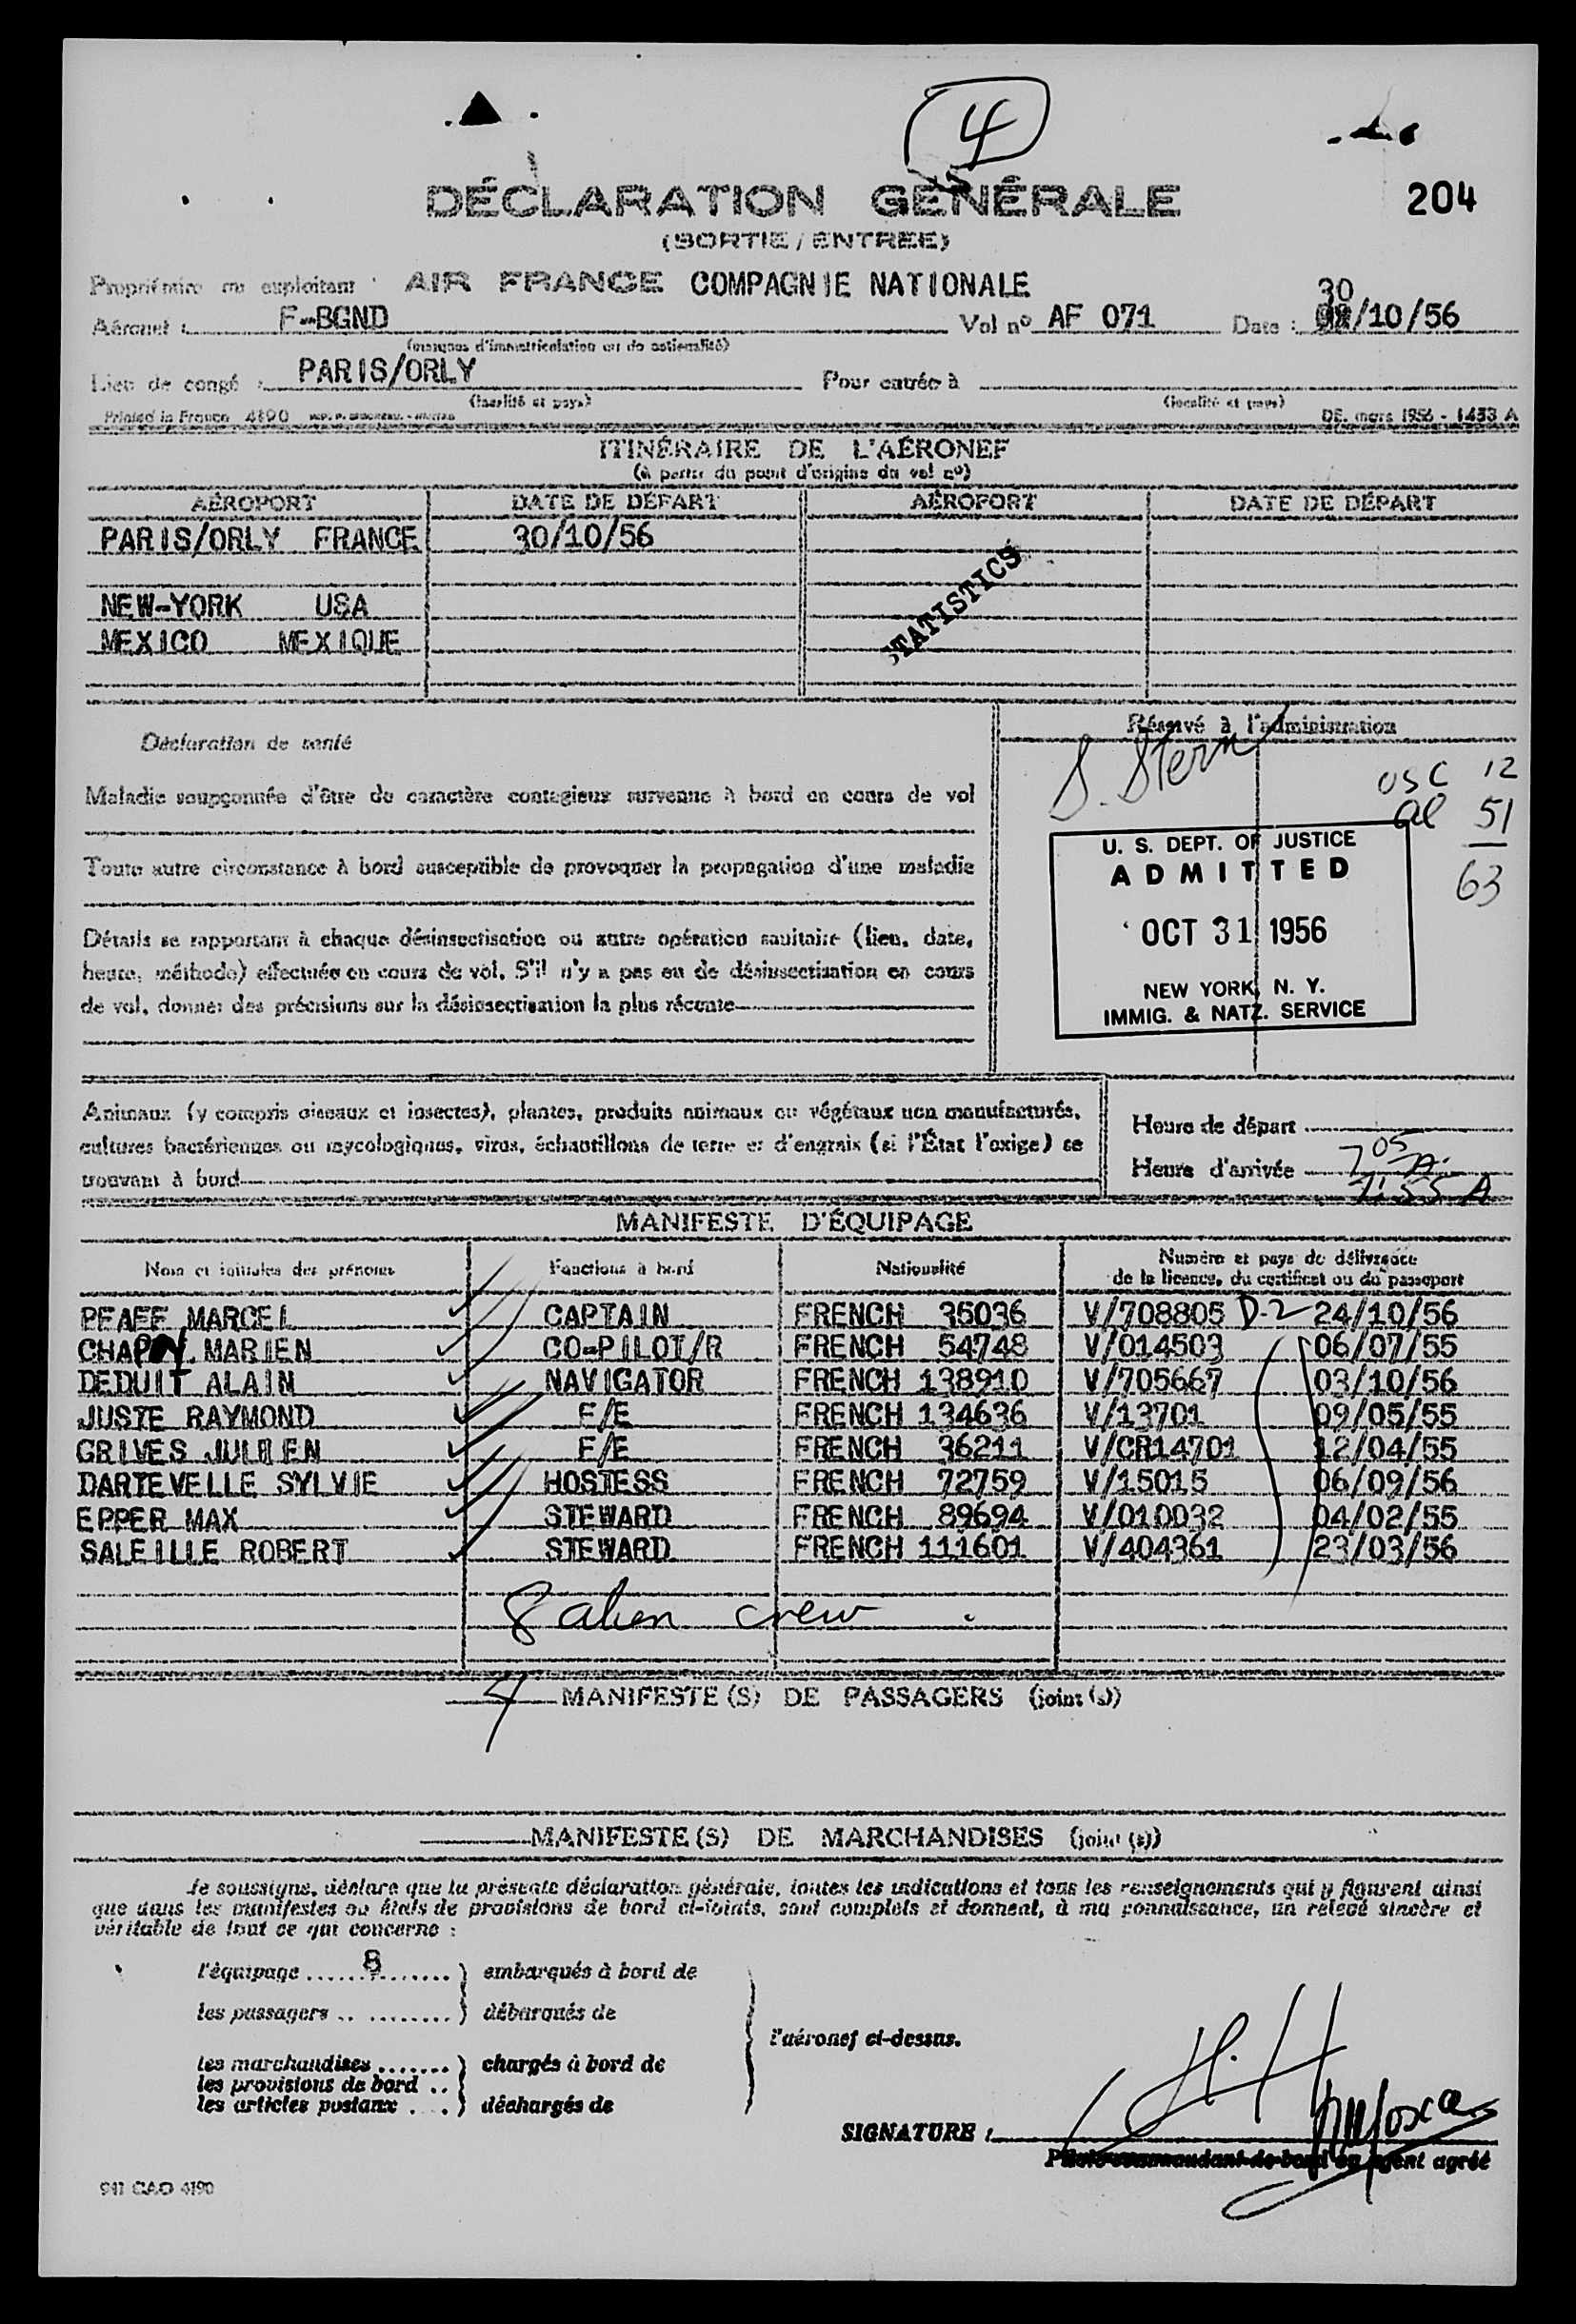 4
DÉCLARATION GÉNÉRALE
204
(SORTIE / ENTREE)
Propriétaire ou exploitant : AIR FRANCE COMPAGNIE NATIONALE
30
Aéronef : F-BGND Vol nº AF 071 Date : /10/56
(marques d'immatriculation ou de nationalité)
Lieu de congé : PARIS/ORLY Pour entrée à
(localité et pays) (localité et pays)
Printed in France 4190 DE. mars 1956 - 1433 A
ITINÉRAIRE DE L'AÉRONEF
(à partir du point d'origine du vol nº)
AÉROPORT DATE DE DÉPART AÉROPORT DATE DE DÉPART
PARIS/ORLY FRANCE 30/10/56
STATISTICS
NEW-YORK USA
MEXICO MEXIQUE
Déclaration de santé
Réservé à l'administration
S. Stern
USC 12
al 51
63
Maladie soupçonnée d'être de caractère contagieux survenue à bord en cours de vol
Toute autre circonstance à bord susceptible de provoquer la propagation d'une maladie
Détails se rapportant à chaque désinsectisation ou autre opération sanitaire (lieu, date,
heure, méthode) effectuée en cours de vol. S'il n'y a pas eu de désinsectisation en cours
de vol, donner des précisions sur la désinsectisation la plus récente
U. S. DEPT. OF JUSTICE
ADMITTED
OCT 31 1956
NEW YORK, N. Y.
IMMIG. & NATZ. SERVICE
Animaux (y compris oiseaux et insectes), plantes, produits animaux ou végétaux non manufacturés,
cultures bactériennes ou mycologiques, virus, échantillons de terre et d'engrais (si l'État l'exige) se
trouvant à bord
Heure de départ
Heure d'arrivée 705 A.
7:55 A
MANIFESTE D'ÉQUIPAGE
Nom et initiales des prénoms Fonctions à bord Nationalité Numéro et pays de délivrance
de la licence, du certificat ou du passeport
PFAFF MARCEL CAPTAIN FRENCH 35036 V/708805 D-2 24/10/56
CHAPOY MARIEN CO-PILOT/R FRENCH 54748 V/014503 06/07/55
DEDUIT ALAIN NAVIGATOR FRENCH 138910 V/705667 03/10/56
JUSTE RAYMOND F/E FRENCH 134636 V/13701 09/05/55
GRIVES JULIEN F/E FRENCH 36211 V/CR14701 12/04/55
DARTEVELLE SYLVIE HOSTESS FRENCH 72759 V/15015 06/09/56
EPPER MAX STEWARD FRENCH 89694 V/010032 04/02/55
SALEILLE ROBERT STEWARD FRENCH 111601 V/404361 23/03/56
8 alien crew
4 MANIFESTE (S) DE PASSAGERS (joint (s))
MANIFESTE (S) DE MARCHANDISES (joint (s))
Je soussigné, déclare que la présente déclaration générale, toutes les indications et tous les renseignements qui y figurent ainsi
que dans les manifestes ou états de provisions de bord ci-joints, sont complets et donnent, à ma connaissance, un relevé sincère et
véritable de tout ce qui concerne :
l'équipage ...... 8 ...... ) embarqués à bord de
les passagers .. ........ ) débarqués de
l'aéronef ci-dessus.
les marchandises ....... ) chargés à bord de
les provisions de bord ..
les articles postaux .... ) déchargés de
SIGNATURE :
Pilote commandant de bord ou agent agréé
941 CAO 4190